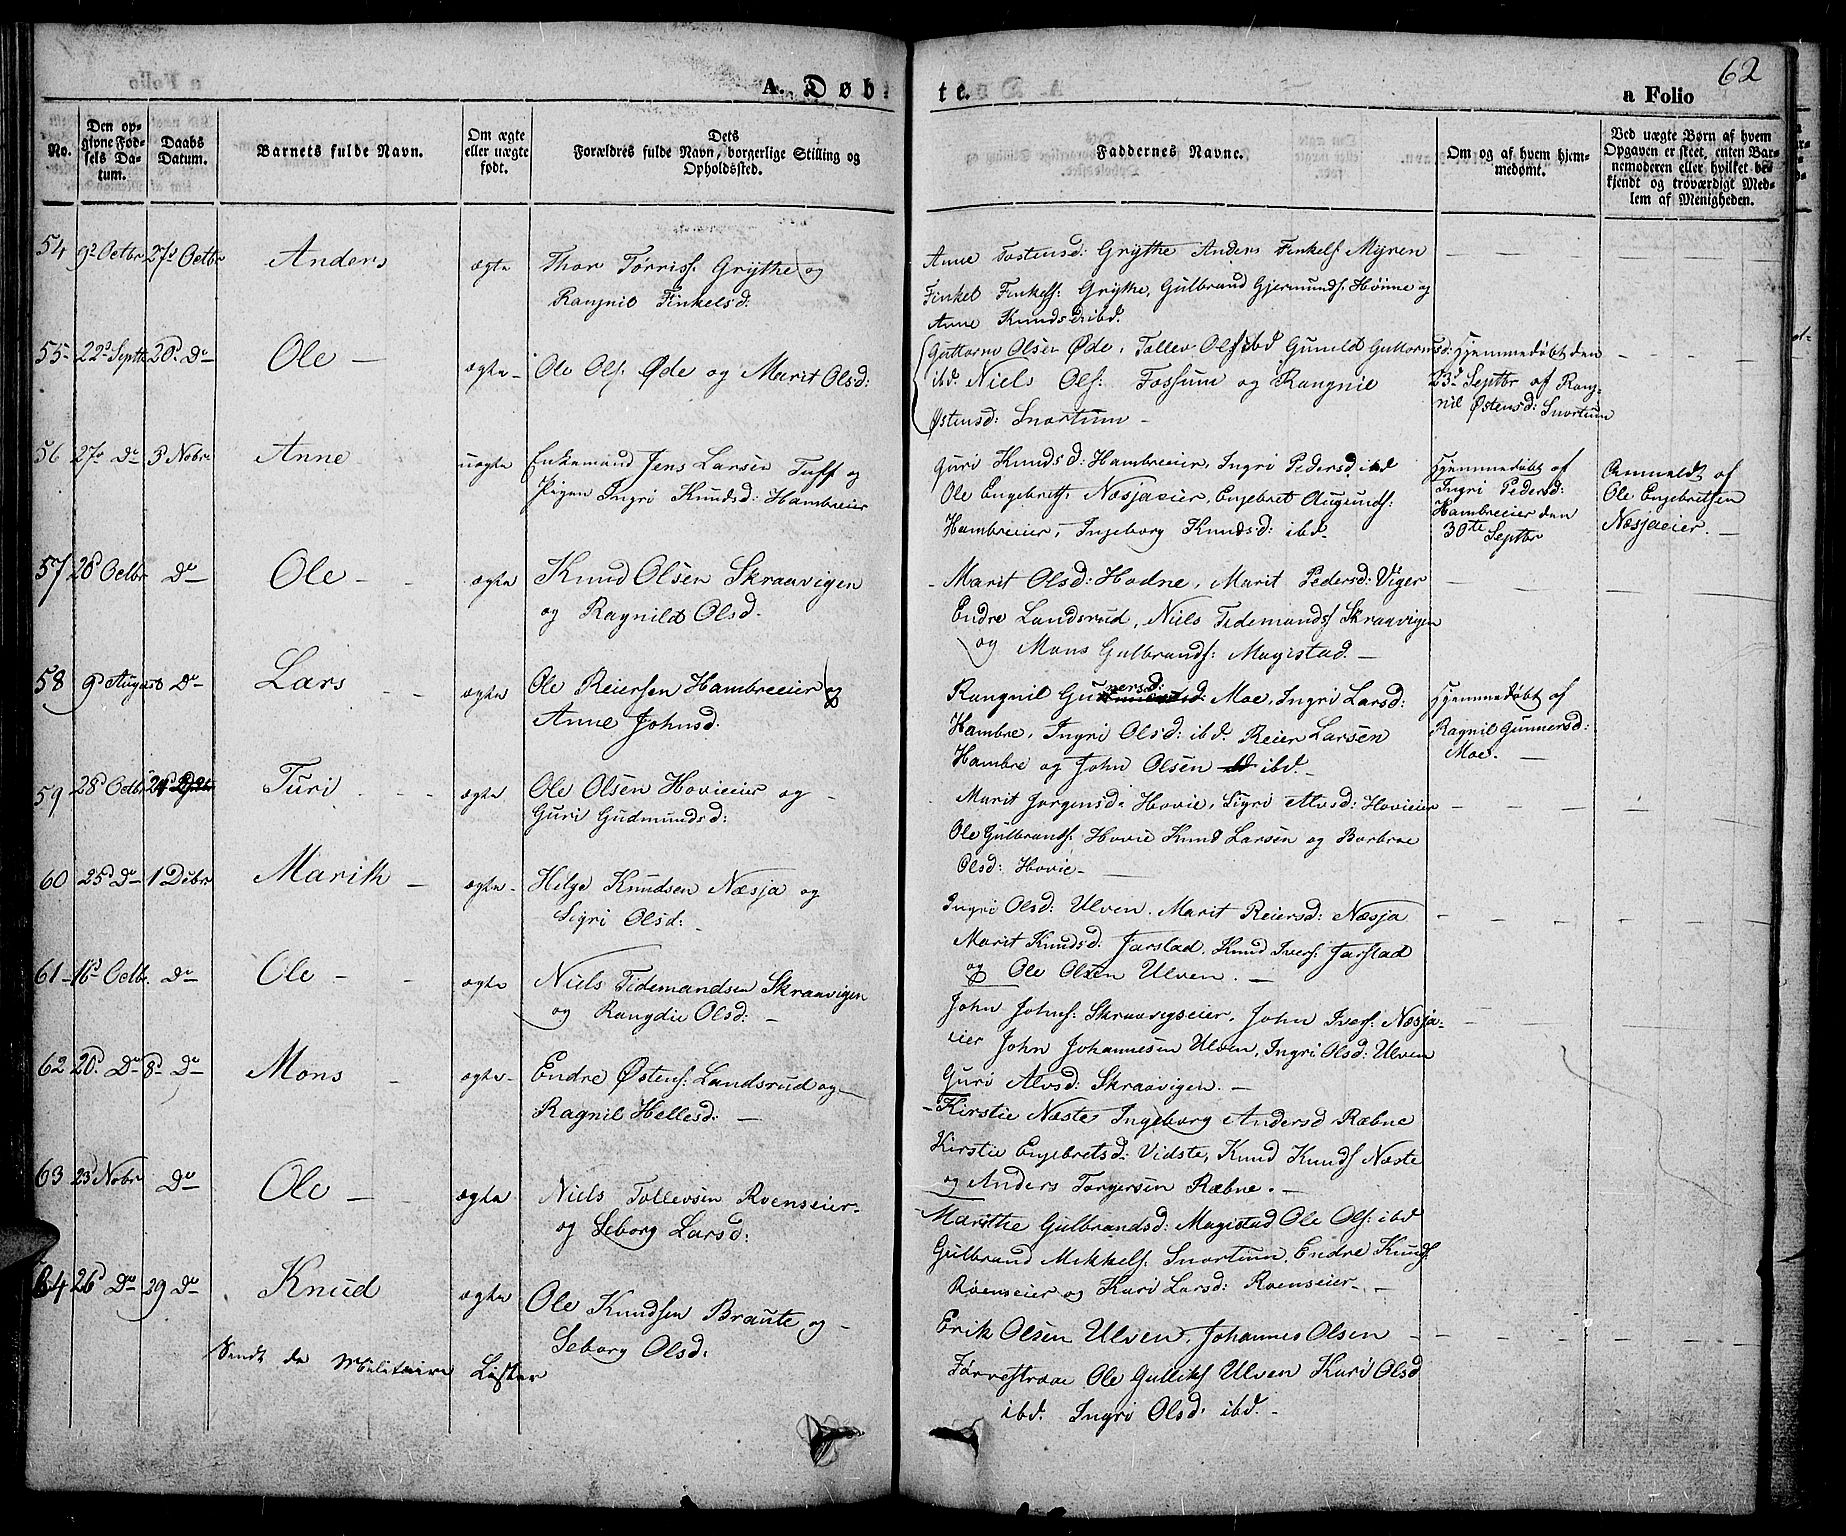 A. Døbte.
a Folio 62
No.
Den opgivne Fødsels Datum.
Daabs Datum.
Barnets fulde Navn.
Om ægte eller uægte født.
Dets Forældres fulde Navn, borgerlige Stilling og Opholdssted.
Faddernes Navne.
Om og af hvem hjemmedømt.
Ved uægte Børn af hvem Opgaven er skeet, enten Barnemoderen eller hvilket bekjendt og troværdigt Medlem af Menigheden.
54 9d Octbr 27d Octbr Anders ægte Thor Törriss: Grythe og
Rangnil Finkelsd.
Anne Tostensd: Grythe Anders Finkels: Myren
Finkel Finkels: Grythe, Gulbrand Gjermunds: Hönne og
Anne Knudsd ibd.
55 22d Septbr 20d Do Ole ægte Ole Ols: Øde og Marit Olsd:
Guttorm Olsen Øde, Tollev Ols: ibd Gunild Guttormsd:
ibd. Niels Ols: Fossum og Rangnil
Østensd: Snortum
Hjemmedøbt den
23d Septbr af Rang-
nil Østensd: Snortum
56 27d Do 3 Nobr Anne uægte Enkemand Jens Larsen Tuff og
Pigen Ingri Knudsd: Hambreeier
Guri Knudsd: Hambreeier, Ingri Pedersd ibd
Ole Engebrets: Næsjaeier, Engebret Augunds:
Hambreeier, Ingeborg Knudsd: ibd
Hjemmedøbt af
Ingri Pedersd:
Hambreeier den
30te Septbr
Anmeldt af
Ole Engebretsen
Næsjaeier.
57 28d Octbr Do Ole ægte Knud Olsen Skraavigen
og Ragnild Olsd.
Marit Olsd: Hodne, Marit Pedersd: Viger
Endre Landsrud, Niels Tidemands: Skraavigen
og Mons Gulbrands: Magistad.
58 9d August Do Lars ægte Ole Reiersen Hambreeier og
Anne Johnsd:
Rangnil Gunnersd: Moe, Ingri Larsd:
Hambre, Ingri Olsd: ibd. Reier Larsen
Hambre og John Olsen ibd.
Hjemmedøbt af
Ragnil Gunnersd:
Moe.
59 28d Octbr 24d Turi ægte Ole Olsen Hovieier og
Guri Gudmundsd:
Marit Jorgensd: Hovie, Sigri Alvsd: Hovieier
Ole Gulbrands: Hovie Knud Larsen og Barbroe
Olsd: Hovie
60 25d Do 1 Debr Marith ægte Helge Knudsen Næsja og
Sigri Olsd:
Ingri Olsd: Ulven, Marit Reiersd: Næsja
Marit Knudsd. Jarstad. Knud Ivers: Jarstad
og Ole Olsen Ulven.
61 16d Octbr. Do Ole ægte Niels Tidemandsen Skraavigen
og Rangdie Olsd:
John Johns: Skraavigseier, John Ivers: Næsja-
eier John Johannesen Ulven, Ingri Olsd: Ulven
Guri Alvsd: Skraavigen.
62 20d Do 8d Do Mons ægte Endre Østens: Landsrud og
Ragnil Hellesd:
Kirstie Næste Ingeborg Andersd Ræbne
Kirstie Engebretsd: Vidste, Knud Knuds: Næste
og Anders Torgersen Ræbne.
63 23 Nobr Do Ole ægte Niels Tollevsen Roenseier
og Seborg Larsd:
Marithe Gulbrandsd: Magistad Ole Ols: ibd
Gulbrand Mikkels: Snortum, Endre Knuds
Roenseier og Kari Larsd: Roenseier
64 26d Do 29 Do Knud ægte Ole Knudsen Braute og
Seborg Olsd:
Erik Olsen Ulven, Johannes Olsen
Torrestraae Ole Gulliks: Ulven Kari Olsd
ibd. Ingri Olsd: ibd.
Sendt de Militaire Lister